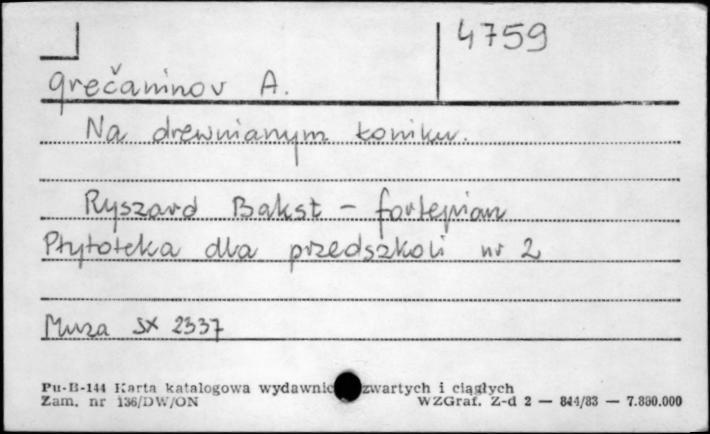 4759
Grečaninov A.
Na drewnianym koniku.
Ryszard Bakst - fortepian
Płytoteka dla przedszkoli nr 2
Muza SX 2337
Pu-B-144 Karta katalogowa wydawnic zwartych i ciągłych
Zam. nr 136/DW/ON WZGraf. Z-d 2 — 844/83 — 7.800.000